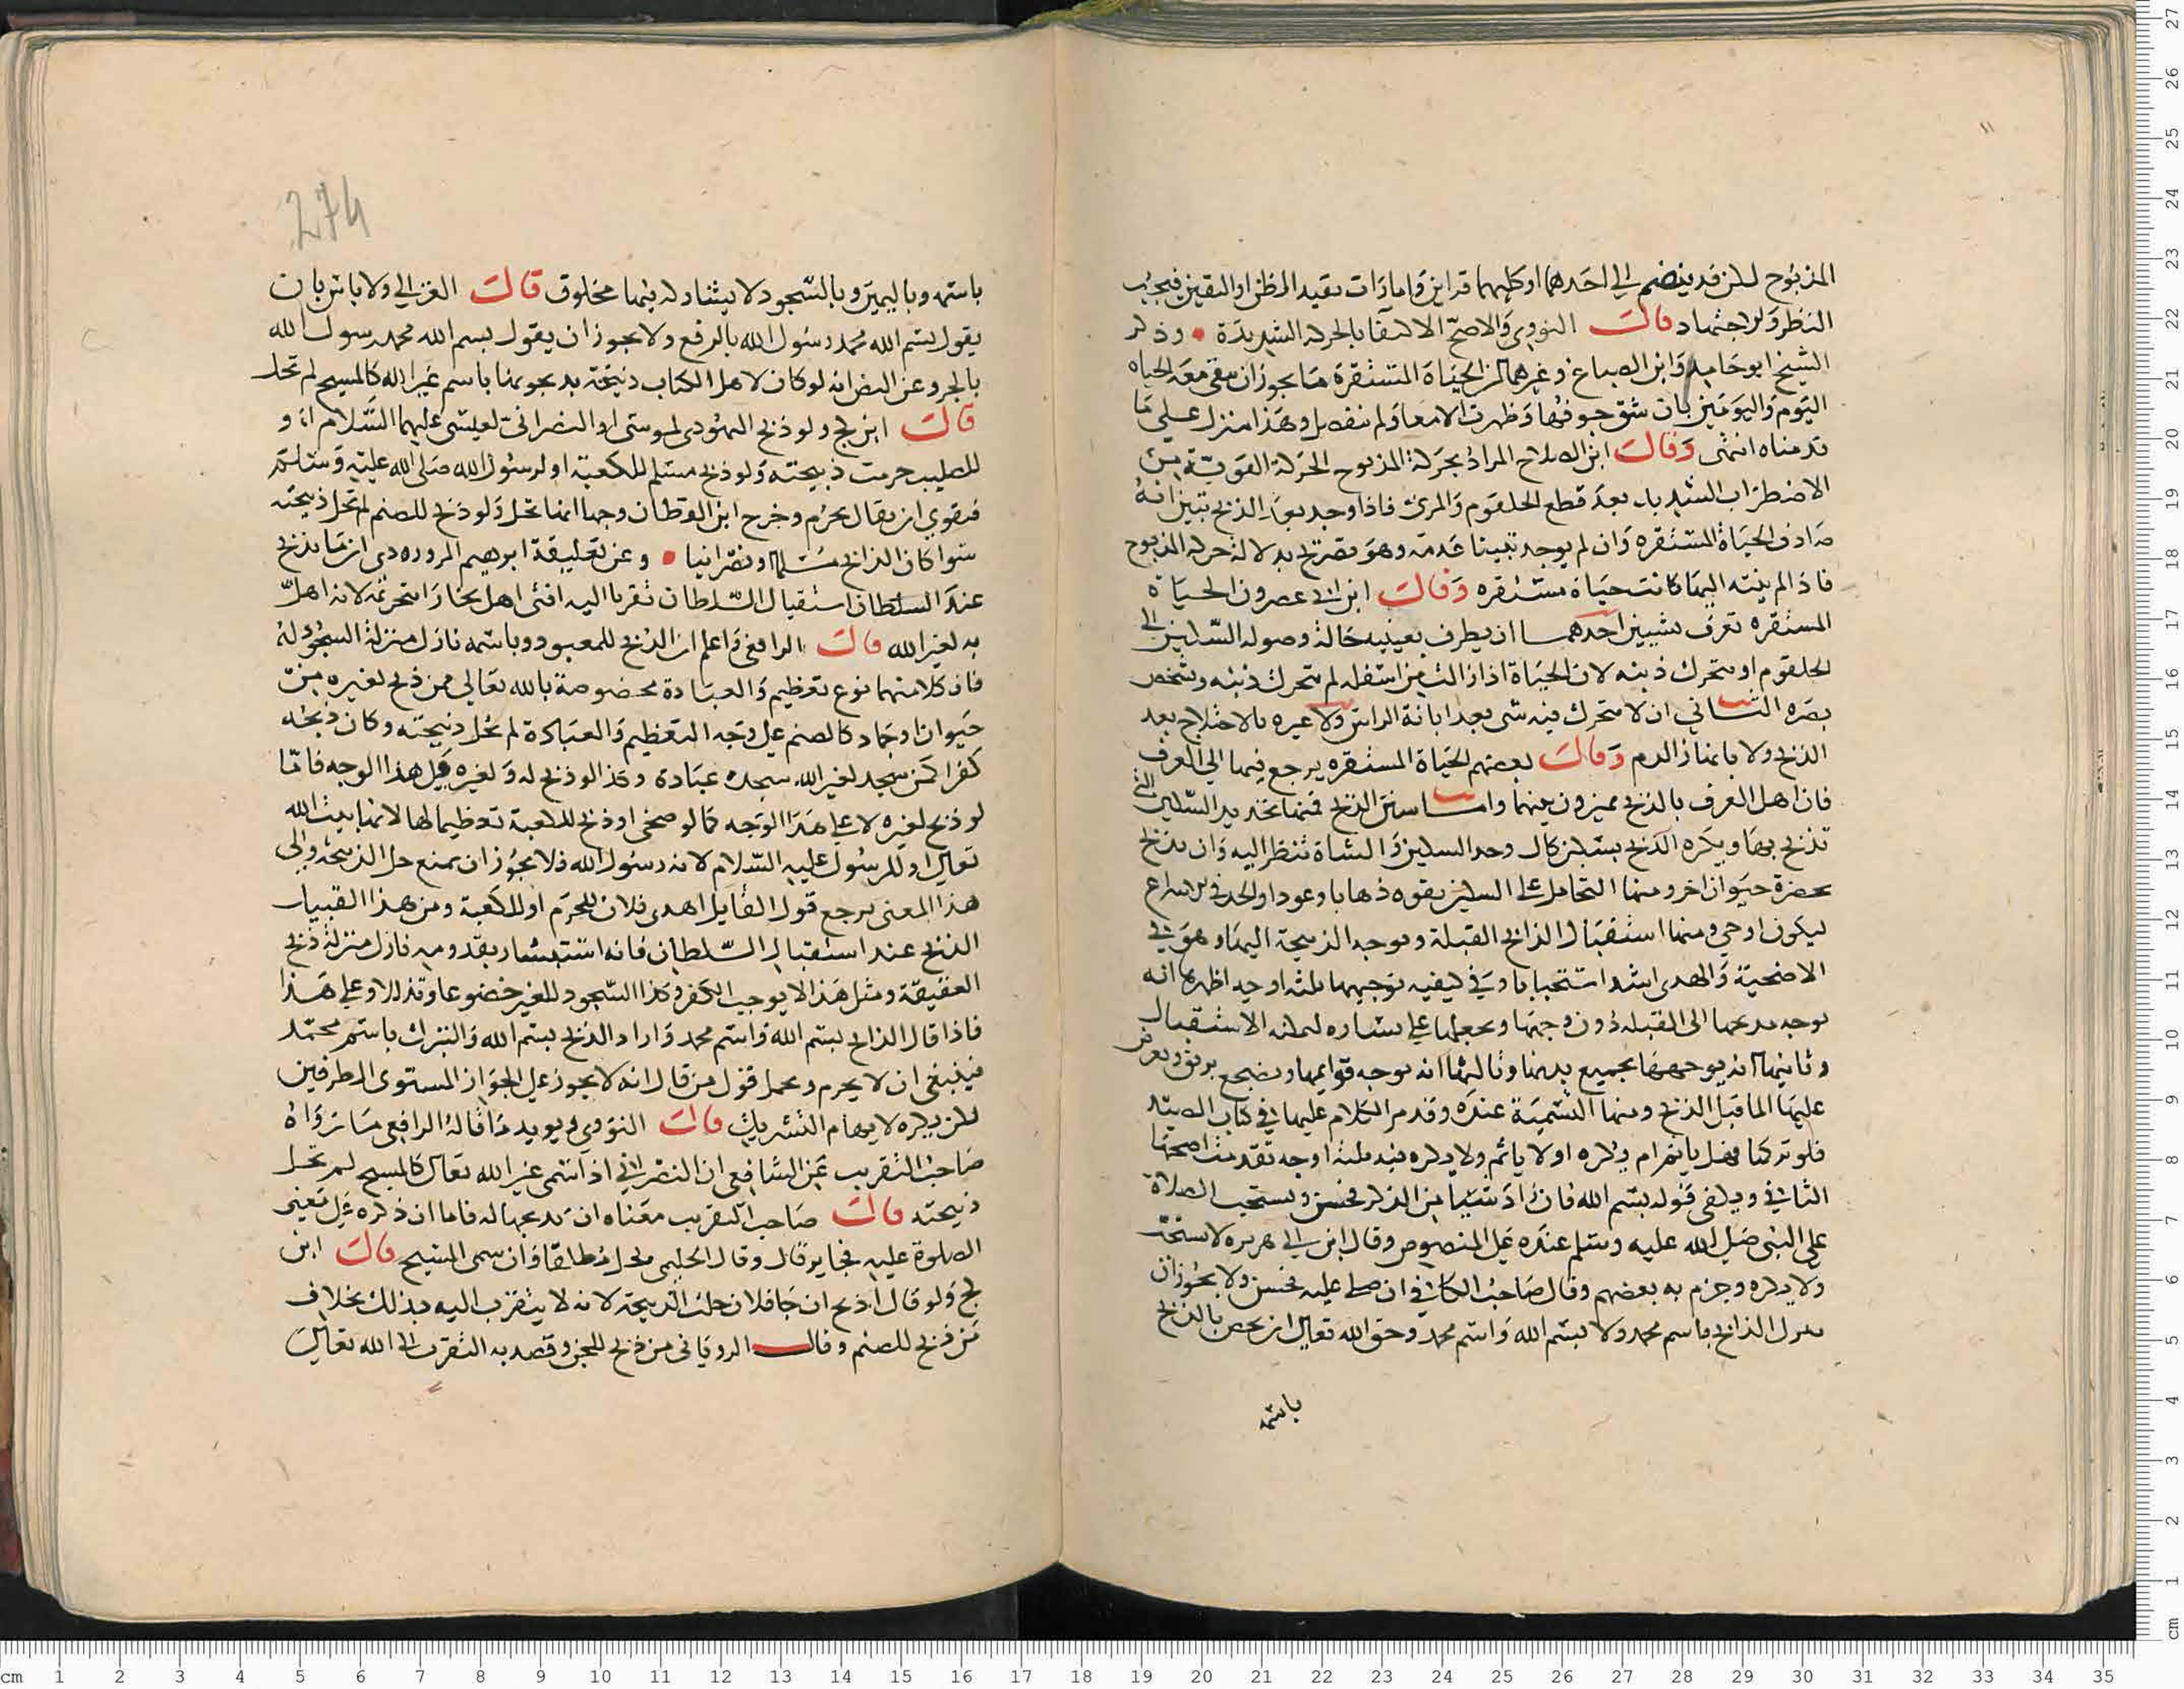 المذبوح لكن قد ينضم الي احدهما او كليهما قراين وامارات تفيد الظن او اليقين فيجب
النظر والاجتهاد قال النووي والاصح الاكتفا بالحركة الشديدة وذكر
الشيخ ابو حامد وابن الصباغ وغيرهما ان الحياة المستقرة ما يجوز ان يبقى معه الحياه
اليوم واليومين بان شق جوفها وظهرت الامعا ولم تنفصل وهذا منزل على ما
قدمناه انتهى وقال ابن الصلاح المراد بحركة المذبوح الحركة القوية من
الاضطراب الشديد بعد قطع الحلقوم والمرئ فاذا وجد بعد الذبح تبين انه
صادف الحياة المستقره وان لم يوجد تبينا عدمه وهو تصريح بدلالة حركة المذبوح
فاذا لم ينته اليها كانت حياة مستقره وقال ابن ابي عصرون الحياة
المستقره تعرف بشيين احدهما ان يطرف بعينيه حالة وصول السكين الى
الحلقوم او يتحرك ذنبه لان الحياة اذا زالت من اسفله لم يتحرك ذنبه وشخص
بصره الثاني ان لا يتحرك فيه شى بعد ابانة الراس ولا عبره بالاختلاج بعد
الذبح ولا بانهار الدم وقال بعضهم الحياة المستقره يرجع فيها الى العرف
فان اهل العرف بالذبح يميزون بينهما واما سنن الذبح فمنها تحديد السكين التي
تذبح بها ويكره الذبح بسكين كال وحد السكين والشاة تنظر اليه وان يذبح
بحضرة حيوان اخر ومنها التحامل على السكين بقوه ذهابا وعودا والجد في الاسراع
ليكون اوحي ومنها استقبال الذابح القبلة وتوجيه الذبيحة اليها وهو في
الاضحية والهدى اشد استحبابا وفي كيفيه توجيهها ثلثه اوجه اظهرها انه
يوجه مذبحها الى القبله دون وجهها ويجعلها على يساره ليمكنه الاستقبال
وثانيها انه يوجهها بجميع بدنها وثالثها انه يوجه قوايمها ويضجع برفق ويعرض
عليها الما قبل الذبح ومنها التسمية عنده وقد مر الكلام عليها في كتاب الصيد
فلو تركها فهل ياثم ام يكره او لا ياثم ولا يكره فيه ثلثة اوجه تقدمت اصحها
الثاني ويكفي قوله بسم الله فان زاد شيا من الذكر فحسن ويستحب الصلاة
على النبي صلى الله عليه وسلم عنده على المنصوص وقال ابن ابي هريره لا يستحب
ولا يكره وجزم به بعضهم وقال صاحب الكافي ان صلى عليه فحسن ولا يجوز ان
يقول الذابح باسم محمد ولا بسم الله واسم محمد وحق الله تعالى ان يختص بالذبح
باسمه
274
باسمه وباليمين وبالسجود لا يشاركه فيها مخلوق قال الغزالي ولا باس بان
يقول بسم الله محمد رسول الله بالرفع ولا يجوز ان يقول بسم الله محمد رسول الله
بالجر وعن النص انه لو كان لاهل الكتاب ذبيحة يذبحونها باسم غير الله كالمسيح لم تحل
قال ابن كج ولو ذبح اليهودى لموسى او النصرانى لعيسى عليهما السلام او
للصليب حرمت ذبيحته ولو ذبح مسلم للكعبة او لرسول الله صلى الله عليه وسلم
فيقوي ان يقال يحرم وخرج ابن القطان وجها انها تحل ولو ذبح للصنم لم تحل ذبيحته
سوا كان الذابح مسلما او نصرانيا وعن تعليقة ابرهيم المروروذى ان ما يذبح
عند السلطان استقبال السلطان تقربا اليه افتى اهل بخارا بتحريمه لانه اهل
به لغير الله قال الرافعى واعلم ان الذبح للمعبود وباسمه نازل منزلة السجود له
فان كلا منهما نوع تعظيم والعبادة مخصوصة بالله تعالي فمن ذبح لغيره من
حيوان او جماد كالصنم على وجه التعظيم والعبادة لم تحل ذبيحته وكان ذبحه
كفرا كمن سجد لغير الله سجده عبادة وكذا لو ذبح له ولغيره على هذا الوجه فاما
لو ذبح لغيره لا على هذا الوجه كما لو ضحى او ذبح للكعبة تعظيما لها لانها بيت الله
تعالى او للرسول عليه السلام لانه رسول الله فلا يجوز ان يمنع حل الذبيحة والى
هذا المعنى يرجع قول القايل اهدى فلان للحرم او للكعبة ومن هذا القبيل
الذبح عند استقبال السلطان فانه استبشار بقدومه نازل منزلة ذبح
العقيقة ومثل هذا لا يوجب الكفر وكذا السجود للغير خضوعا وتذللا وعلى هذا
فاذا قال الذابح بسم الله واسم محمد واراد الذبح بسم الله والتبرك باسم محمد
فينبغي ان لا يحرم ويحمل قول من قال انه لا يجوز على الجواز المستوى الطرفين
لكن يكره لايهام التشريك قال النووي ويويد ما قاله الرافعى ما رواه
صاحب التقريب عن الشافعى ان النصراني اذا سمى غير الله تعالى كالمسيح لم تحل
ذبيحته قال صاحب التقريب معناه ان يذبحها له فاما ان ذكره على معنى
الصلوة عليه فجايز قال وقال الحليمى تحل مطلقا وان سمى المسيح قال ابن
كج ولو قال اذبح ان جا فلان حلت الذبيحة لانه لا يتقرب اليه بذلك بخلاف
من ذبح للصنم وقال الروياني من ذبح للجن وقصد به التقرب الى الله تعالى